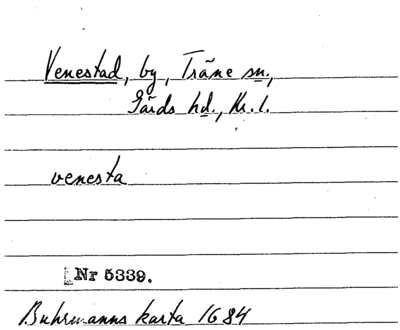 Venestad, by, Träne sn.,
Gärds hd., Kr. l.
venesta
Nr 5339.
Buhrmanns karta 1684